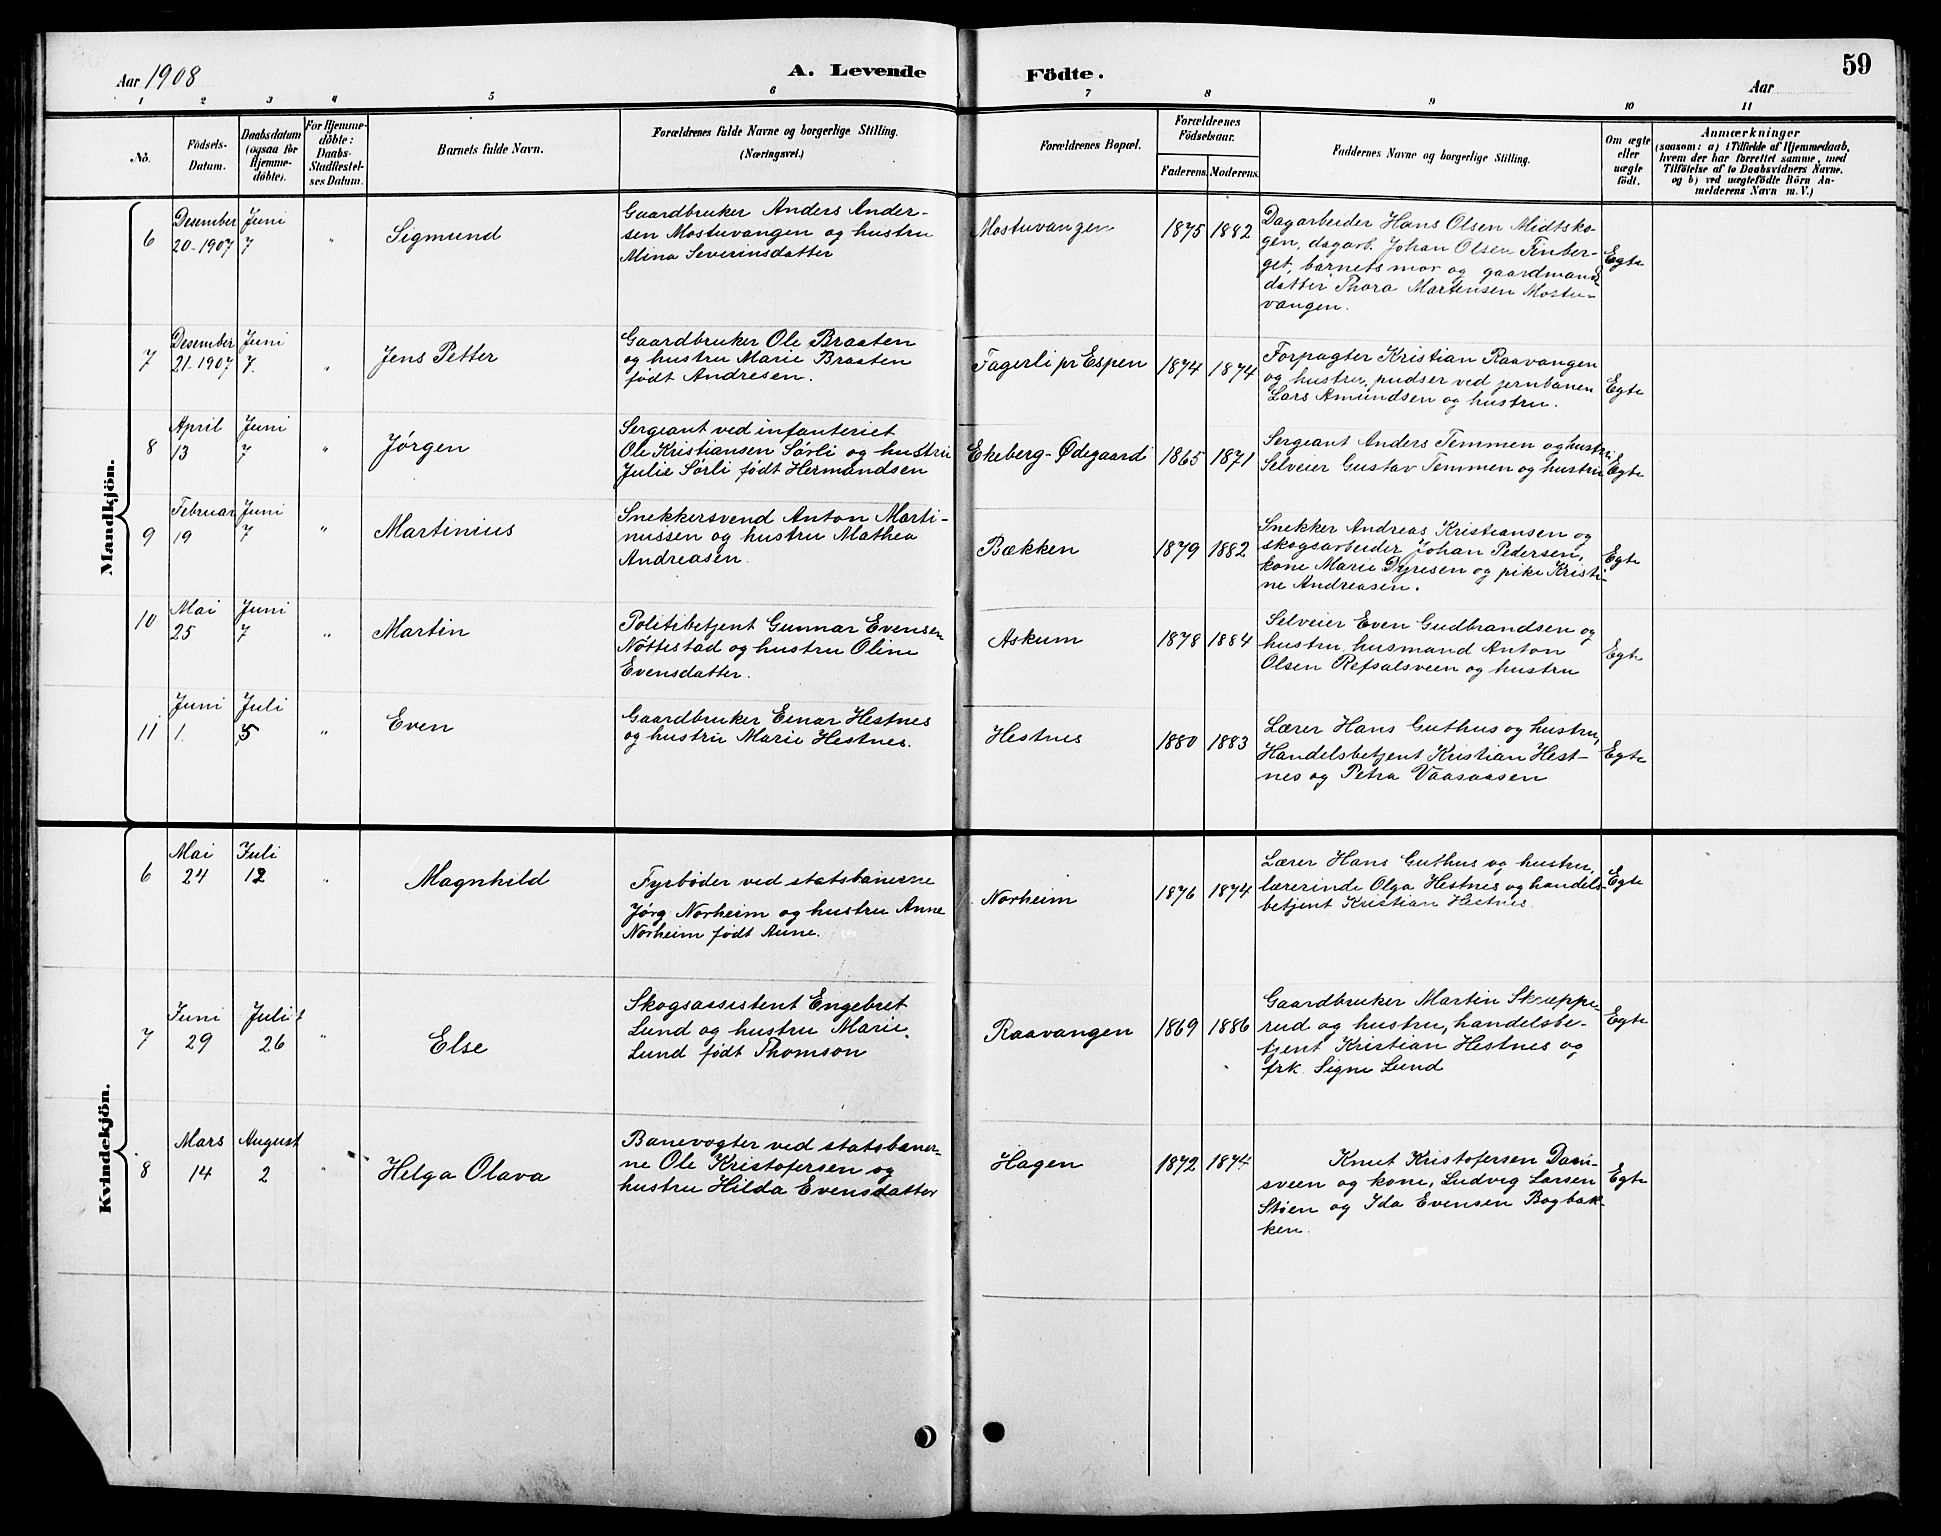 Aar 1908
A. Levende
Födte.
Aar
59
1 2 3 4 5 6 7 8 9 10 11
No.
Födsels-
Datum.
Daabsdatum
(ogsaa for
Hjemme-
døbte).
For Hjemme-
døbte:
Daabs-
Stadfæstel-
ses Datum.
Barnets fulde Navn.
Forældrenes fulde Navne og borgerlige Stilling.
(Næringsvei.)
Forældrenes Bopæl.
Forældrenes
Födselsaar.
Faderens.
Moderens.
Faddernes Navne og borgerlige Stilling.
Om ægte
eller
uægte
født.
Anmærkninger
(saasom: a) i Tilfælde af Hjemmedaab,
hvem der har forrettet samme, med
Tilføielse af to Daabsvidners Navne.
og b) ved uægtefødte Børn An-
melderens Navn m. V.)
Mandkjön.
6
Desember
20-1907
Juni
7
"
Sigmund
Gaardbruker Anders Ander-
sen Mostuvangen og hustru
Mina Severinsdatter
Mostuvangen
1875
1882
Dagarbeider Hans Olsen Midtsko-
gen, dagarb. Johan Olsen Finber-
get, barnets mor og gaardmands-
datter Thora Martensen Mostu-
vangen.
Egte
7
Desember
21-1907
Juni
7.
"
Jens Petter
Gaardbruker Ole Braaten
og hustru Marie Braaten
født Andresen.
Fagerli pr Espen
1874
1874
Forpagter Kristian Raavangen
og hustru, pudser ved jernbanen
Lars Amundsen og hustru.
Egte
8
April
13
Juni
7
"
Jørgen
Sergeant ved infanteriet
Ole Kristiansen Sørli og hustru
Julie Sørli født Hermandsen
Ekeberg-Ødegaard
1865
1871
Sergeant Anders Temmen og hustru
Selveier Gustav Temmen og hustru
Egte
9
Februar
19
Juni
7
"
Martinius
Snekkersvend Anton Marti-
nussen og hustru Mathea
Andreasen.
Bækken
1879
1882
Snekker Andreas Kristiansen og
skogsarbeider Johan Pedersen,
kone Marie Dyresen og pike Kristi-
ne Andreasen.
Egte
10
Mai
25
Juni
7
"
Martin
Politibetjent Gunnar Evensen
Nøttestad og hustru Oline
Evensdatter.
Askum
1878
1884
Selveier Even Gudbrandsen og
hustru, husmand Anton
Olsen Refsalsveen og hustru
Egte
11
Juni
1.
Juli
5
"
Even
Gaardbruker Einar Hestnes
og hustru Marie Hestnes.
Hestnes
1880
1883
Lærer Hans Guthus og hustru,
Handelsbetjent Kristian Hest-
nes og Petra Vaasaasen
Egte
Kvindekjön.
6
Mai
24
Juli
12
"
Magnhild
Fyrbøder ved statsbanerne
Jørg Norheim og hustru Anne
Norheim født Aune.
Norheim
1876
1874
Lærer Hans Guthus og hustru,
lærerinde Olga Hestnes og handels-
betjent Kristian Hestnes.
Egte
7
Juni
29
Juli
26
"
Else
Skogsassistent Engebret
Lund og hustru Marie
Lund født Thomson
Raavangen
1869
1886
Gaardbruker Martin Skræppe-
rud og hustru, handelsbe-
tjent Kristian Hestnes og
frk. Signe Lund
Egte
8
Mars
14
August
2
"
Helga Olava
Banevogter ved statsbaner-
ne Ole Kristofersen og
hustru Hilda Evensdatter
Hagen
1872
1874
Knut Kristofersen
sveen og kone, Ludvig Larsen
Støen og Ida Evensen Bagbak-
ken.
Egte